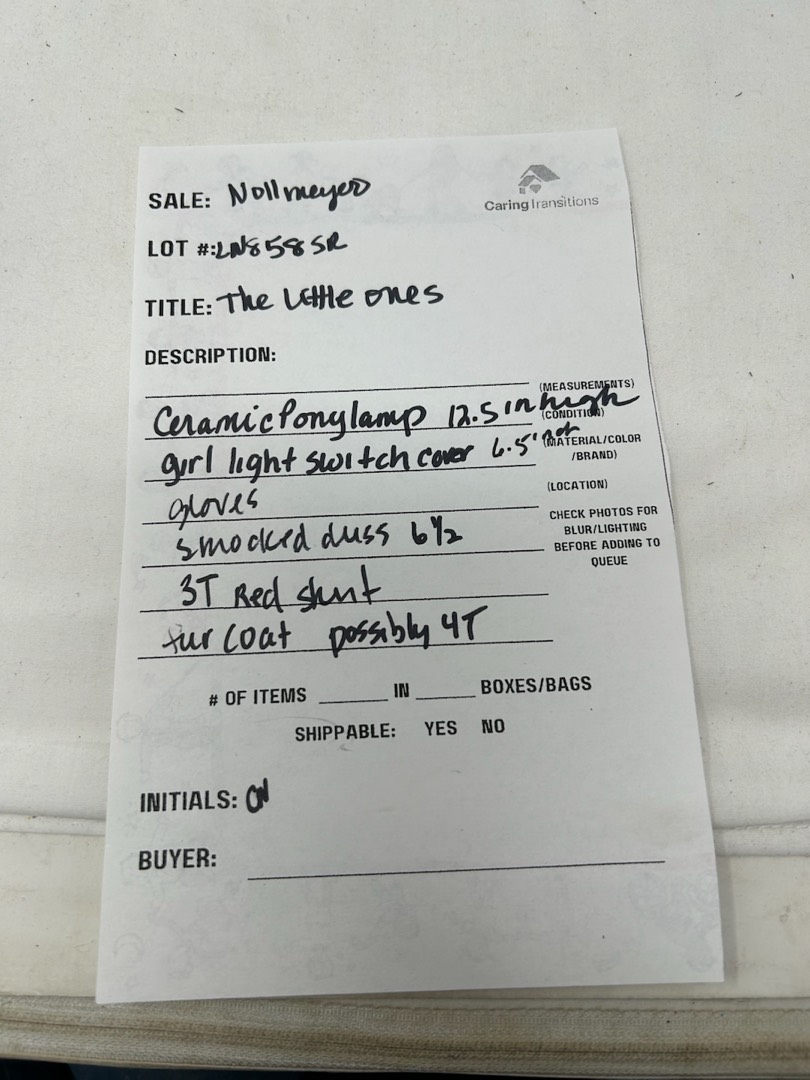 SALE: Nollmeyer
Caring Transitions
LOT #: LN858SR
TITLE: The Little ones
DESCRIPTION:
(MEASUREMENTS)
Ceramic Pony lamp 12.5 in high
(CONDITION)
girl light switch cover 6.5"
(MATERIAL/COLOR
/BRAND)
gloves
(LOCATION)
smocked dress 6 1/2
CHECK PHOTOS FOR
BLUR/LIGHTING
BEFORE ADDING TO
QUEUE
3T Red shirt
fur coat possibly 4T
# OF ITEMS ______ IN ______ BOXES/BAGS
SHIPPABLE: YES NO
INITIALS:
BUYER: